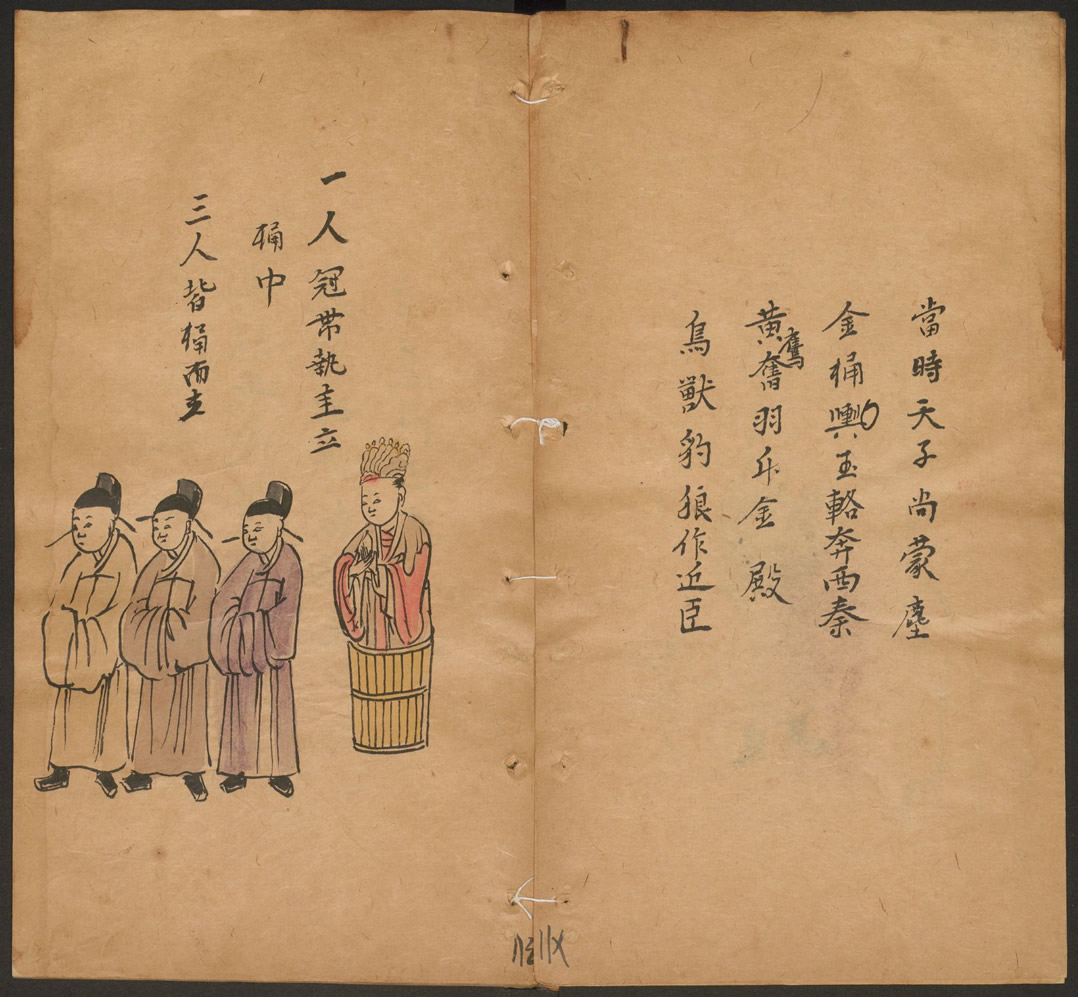 當時天子尚蒙塵
金桶輿玉輅奔西秦
黃奮羽升金殿
鷹
鳥獸豹狼作近臣
一人冠帶執圭立
桶中
三人皆桶而立